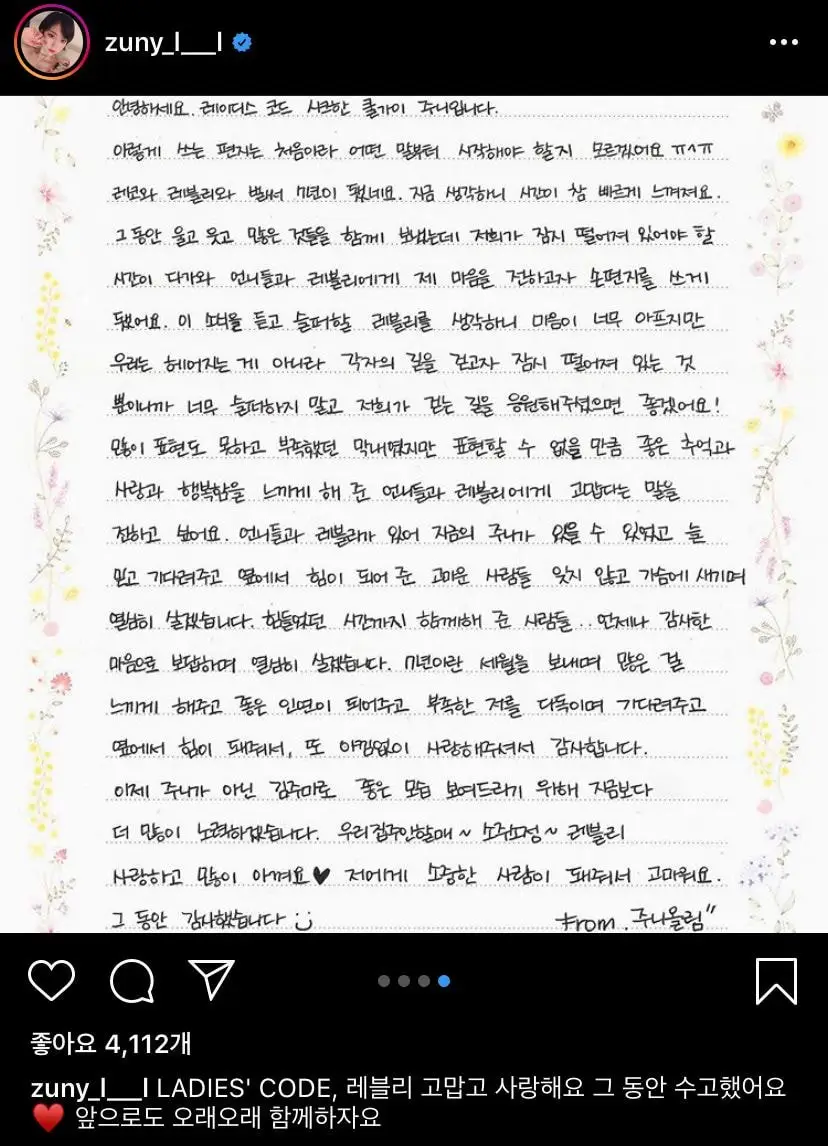 zuny_l___l
안녕하세요. 레이디스 코드 시크한 큘가이 주니입니다.
이렇게 쓰는 편지는 처음이라 어떤 말부터 시작해야 할지 모르겠어요 ㅠ^ㅠ
레코와 레블리와 벌써 7년이 됐네요. 지금 생각하니 시간이 참 빠르게 느껴져요.
그동안 울고 웃고 많은 것들을 함께 보냈는데 저희가 잠시 떨어져 있어야 할
시간이 다가와 언니들과 레블리에게 제 마음을 전하고자 손편지를 쓰게
됐어요. 이 소식을 듣고 슬퍼할 레블리를 생각하니 마음이 너무 아프지만
우리는 헤어지는 게 아니라 각자의 길을 걷고자 잠시 떨어져 있는 것
뿐이니까 너무 슬퍼하지 말고 저희가 걷는 길을 응원해주셨으면 좋겠어요!
많이 표현도 못하고 부족했던 막내였지만 표현할 수 없을 만큼 좋은 추억과
사랑과 행복함을 느끼게 해 준 언니들과 레블리에게 고맙다는 말을
전하고 싶어요. 언니들과 레블리가 있어 지금의 주니가 있을 수 있었고 늘
믿고 기다려주고 옆에서 힘이 되어 준 고마운 사람들 잊지 않고 가슴에 새기며
열심히 살겠습니다. 힘들었던 시간까지 함께해 준 사람들.. 언제나 감사한
마음으로 보답하며 열심히 살겠습니다. 7년이란 세월을 보내며 많은 걸
느끼게 해주고 좋은 인연이 되어주고 부족한 저를 다독이며 기다려주고
옆에서 힘이 돼줘서, 또 아낌없이 사랑해주셔서 감사합니다.
이제 주니가 아닌 김주미로 좋은 모습 보여드리기 위해 지금보다
더 많이 노력하겠습니다. 우리집주인할매~ 소주소정~ 레블리
사랑하고 많이 아껴요♥ 저에게 소중한 사람이 돼줘서 고마워요.
그 동안 감사했습니다 :)
From. 주니올림"
좋아요 4,112개
zuny_l___l LADIES' CODE, 레블리 고맙고 사랑해요 그 동안 수고했어요
❤️ 앞으로도 오래오래 함께하자요